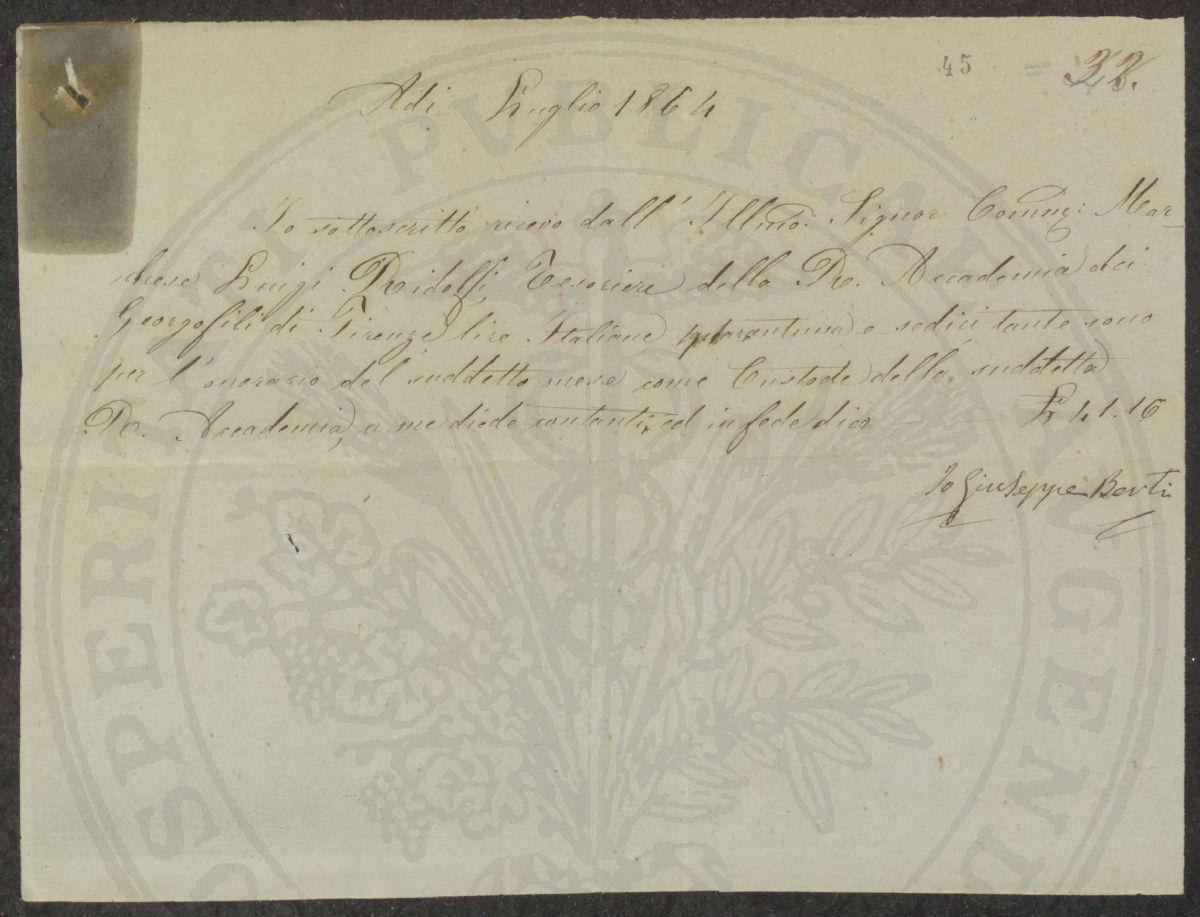 45 = 32.
Adi Luglio 1864
Io sottoscritto ricevo dall' Illmo. Signor Commr: Mar-
chese Luigi Ridolfi, Tesoriere della Re. Accademia dei
Georgofili di Firenze lire Italiane quarantuna e sedici tante sono
per l' onorario del suddetto mese come Custode della suddetta
Re. Accademia, a me diede contanti, ed in fede dico — L 41.16
Io Giuseppe Berti
PROSPERITATI PVBLICAE AVGENDAE